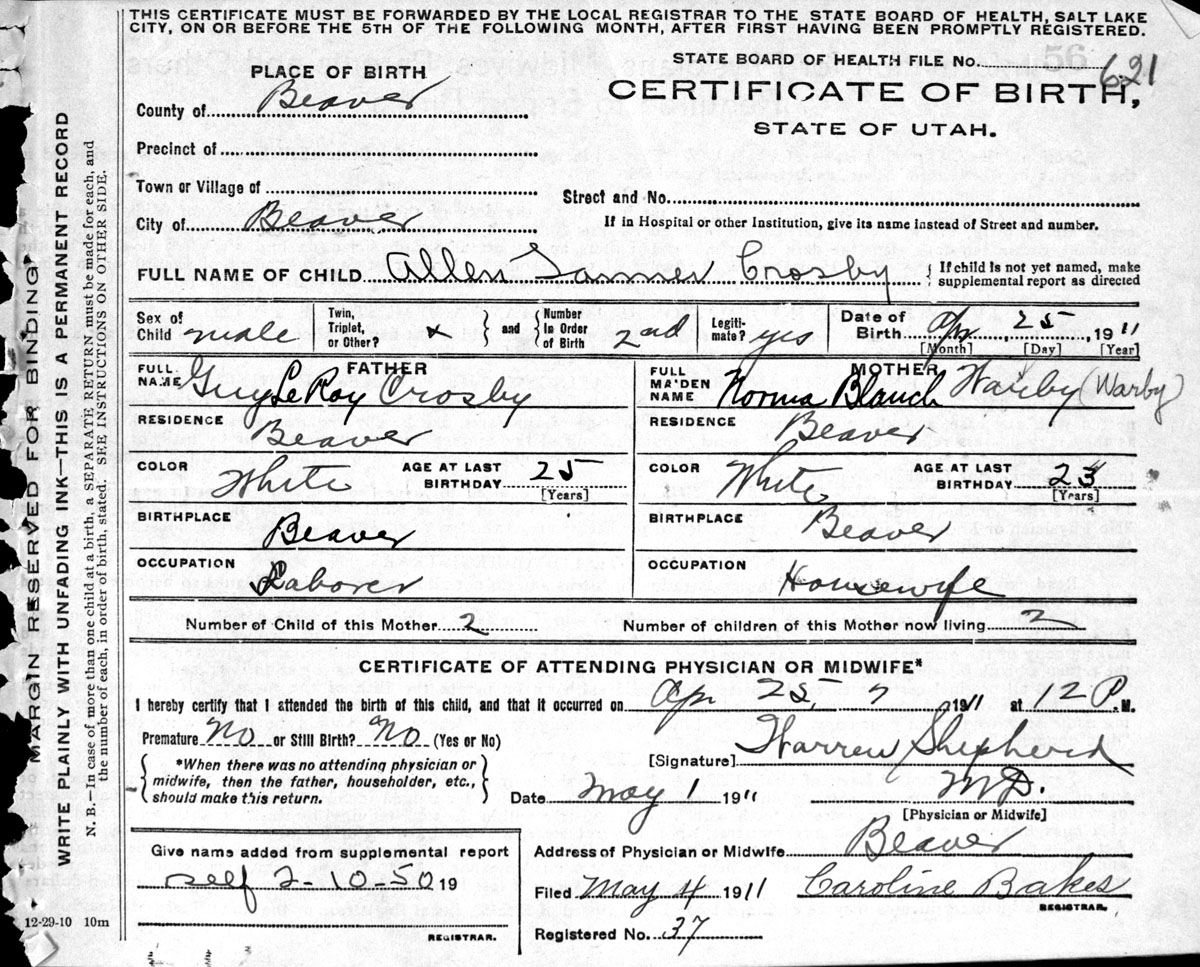 THIS CERTIFICATE MUST BE FORWARDED BY THE LOCAL REGISTRAR TO THE STATE BOARD OF HEALTH, SALT LAKE
CITY, ON OR BEFORE THE 5TH OF THE FOLLOWING MONTH, AFTER FIRST HAVING BEEN PROMPTLY REGISTERED.
MARGIN RESERVED FOR BINDING
WRITE PLAINLY WITH UNFADING INK—THIS IS A PERMANENT RECORD
N. B.—In case of more than one child at a birth, a SEPARATE RETURN must be made for each, and
the number of each, in order of birth, stated. SEE INSTRUCTIONS ON OTHER SIDE.
STATE BOARD OF HEALTH FILE No. 621
PLACE OF BIRTH
CERTIFICATE OF BIRTH,
STATE OF UTAH.
County of Beaver
Precinct of
Town or Village of
Street and No.
City of Beaver
If in Hospital or other Institution, give its name instead of Street and number.
FULL NAME OF CHILD Allen Crosby { If child is not yet named, make
supplemental report as directed
Sex of Child male Twin, Triplet, or Other? x } and { Number In Order of Birth 2nd Legiti- mate? yes Date of Birth Apr. 25, 1911
[Month] [Day] [Year]
FATHER MOTHER
FULL NAME Guy LeRoy Crosby FULL MAIDEN NAME Norma Blanch Warby (Warby)
RESIDENCE Beaver RESIDENCE Beaver
COLOR White AGE AT LAST BIRTHDAY 25 [Years] COLOR White AGE AT LAST BIRTHDAY 23 [Years]
BIRTHPLACE Beaver BIRTHPLACE Beaver
OCCUPATION Laborer OCCUPATION Housewife
Number of Child of this Mother 2 Number of children of this Mother now living 2
CERTIFICATE OF ATTENDING PHYSICIAN OR MIDWIFE*
I hereby certify that I attended the birth of this child, and that it occurred on Apr 25, 1911 at 12 P. M.
Premature No or Still Birth? No (Yes or No)
[Signature] Warren Shepherd
M.D.
[Physician or Midwife]
{ *When there was no attending physician or
midwife, then the father, householder, etc.,
should make this return. }
Date May 1 1911
Give name added from supplemental report
self 2-10-50 19
REGISTRAR.
Address of Physician or Midwife Beaver
Filed May 4 1911 Caroline Bakes
REGISTRAR.
Registered No. 37
12-29-10 10m